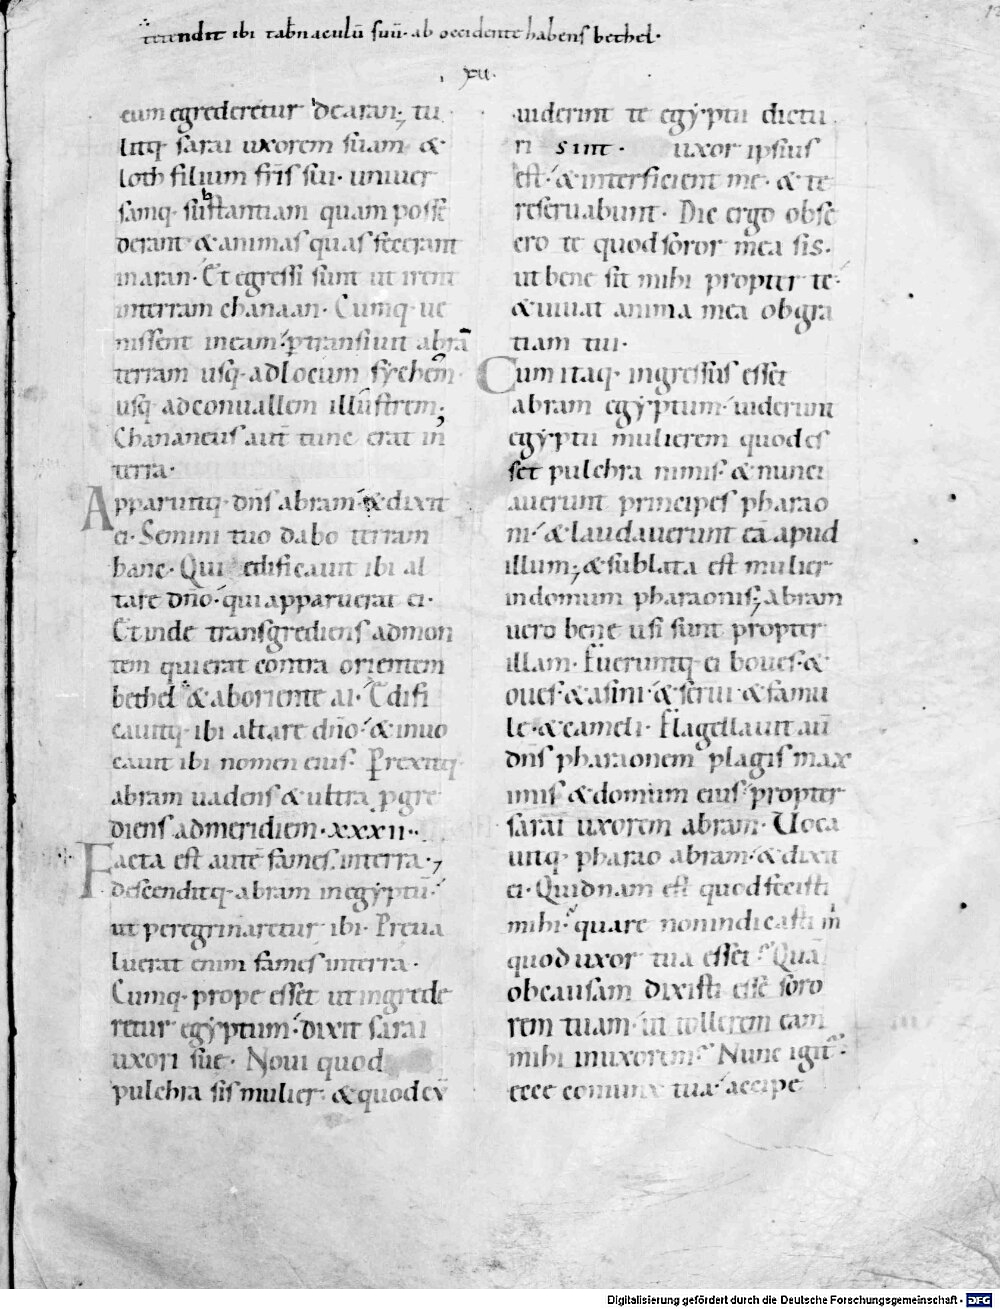 tetendit ibi tab̄naculū suū· ab occidente habens bethel·
xii·
cum egrederetur de aran· tu
litq· sarai uxorem suam &
loth filium fr̄is sui· uniuer
samq· substantiam quam posse
derant & animas quas fecerant
inaran· Et egressi sunt ut irent
interram chanaan· Cumq· ue
nissent ineam· ptransiuit abrā
terram usq· adlocum sychem·
usq· adconuallem illustrem;
Chananeus aut̄ tunc erat in
terra·
Apparuitq· dn̄s abram· & dixit
ei· Semini tuo dabo terram
hanc· Qui edificauit ibi al
tare dn̄o· qui apparuerat ei·
Et inde transgrediens admon
tem qui erat contra orientem
bethel & aboriente ai· Edifi
cauitq· ibi altare dn̄o· & inuo
cauit ibi nomen eius· Prexitq·
abram uadens & ultra pgre
diens admeridiem· xxxii··
Facta est autē fames interra·
descenditq· abram inegyptū·
ut peregrinaretur ibi· Preua
luerat enim fames interra·
Cumq· prope esset ut ingrede
retur egyptum· dixit sarai
uxori sue· Noui quod
pulchra sis mulier· & quod cū
uiderint te egyptii dictu
ri sint· uxor ipsius
est· & interficient me· & te
reseruabunt· Dic ergo obse
cro te quod soror mea sis·
ut bene sit mihi propter te·
& uiuat anima mea obgra
tiam tui·
Cum itaq· ingressus esset
abram egyptum· uiderunt
egyptii mulierem quod es
set pulchra nimis· & nunci
auerunt principes pharao
ni· & laudauerunt eā apud
illum· & sublata est mulier
indomum pharaonis; abram
uero bene usi sunt propter
illam· Fueruntq· ei boues· &
oues· & asini· & serui & famu
le· & cameli· Flagellauit aū
dn̄s pharaonem plagis max
imis & domum eius· propter
sarai uxorem abram· Uoca
uitq· pharao abram· & dixit
ei· Quidnam est quod fecisti
mihi· quare nonindicasti m̄
quod uxor tua esset· Quā
obcausam dixisti esse soro
rem tuam· ut tollerem eam
mihi inuxorem· Nunc igit̄·
ecce coniunx tua· accipe
Digitalisierung gefördert durch die Deutsche Forschungsgemeinschaft - DFG